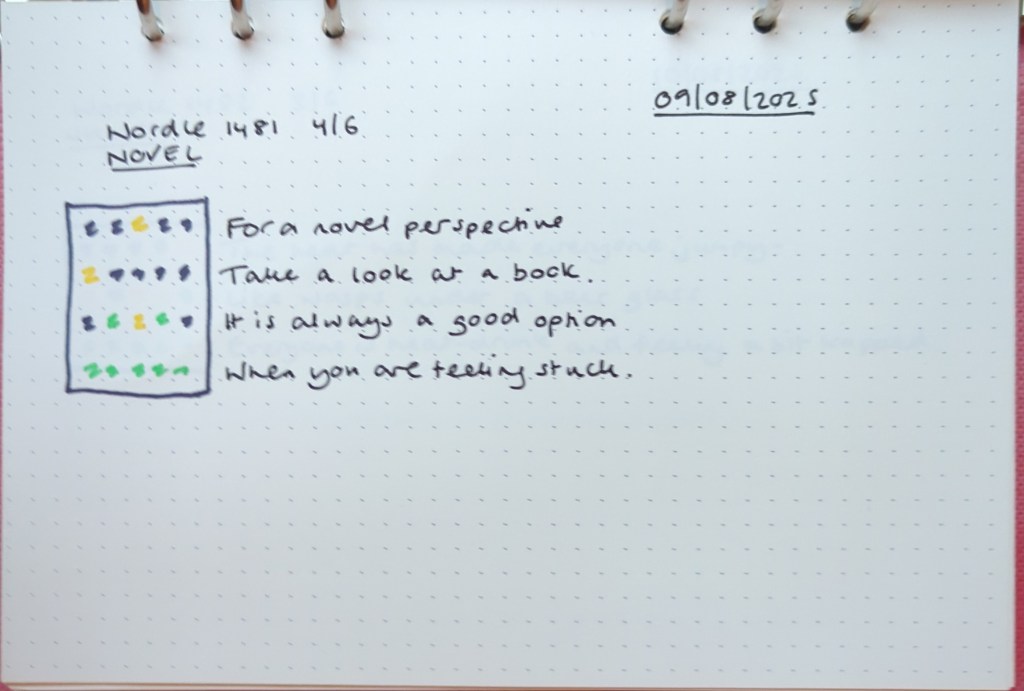 09/08/2025
Wordle 1481 4/6
NOVEL
For a novel perspective
Take a look at a book.
It is always a good option
When you are feeling stuck.